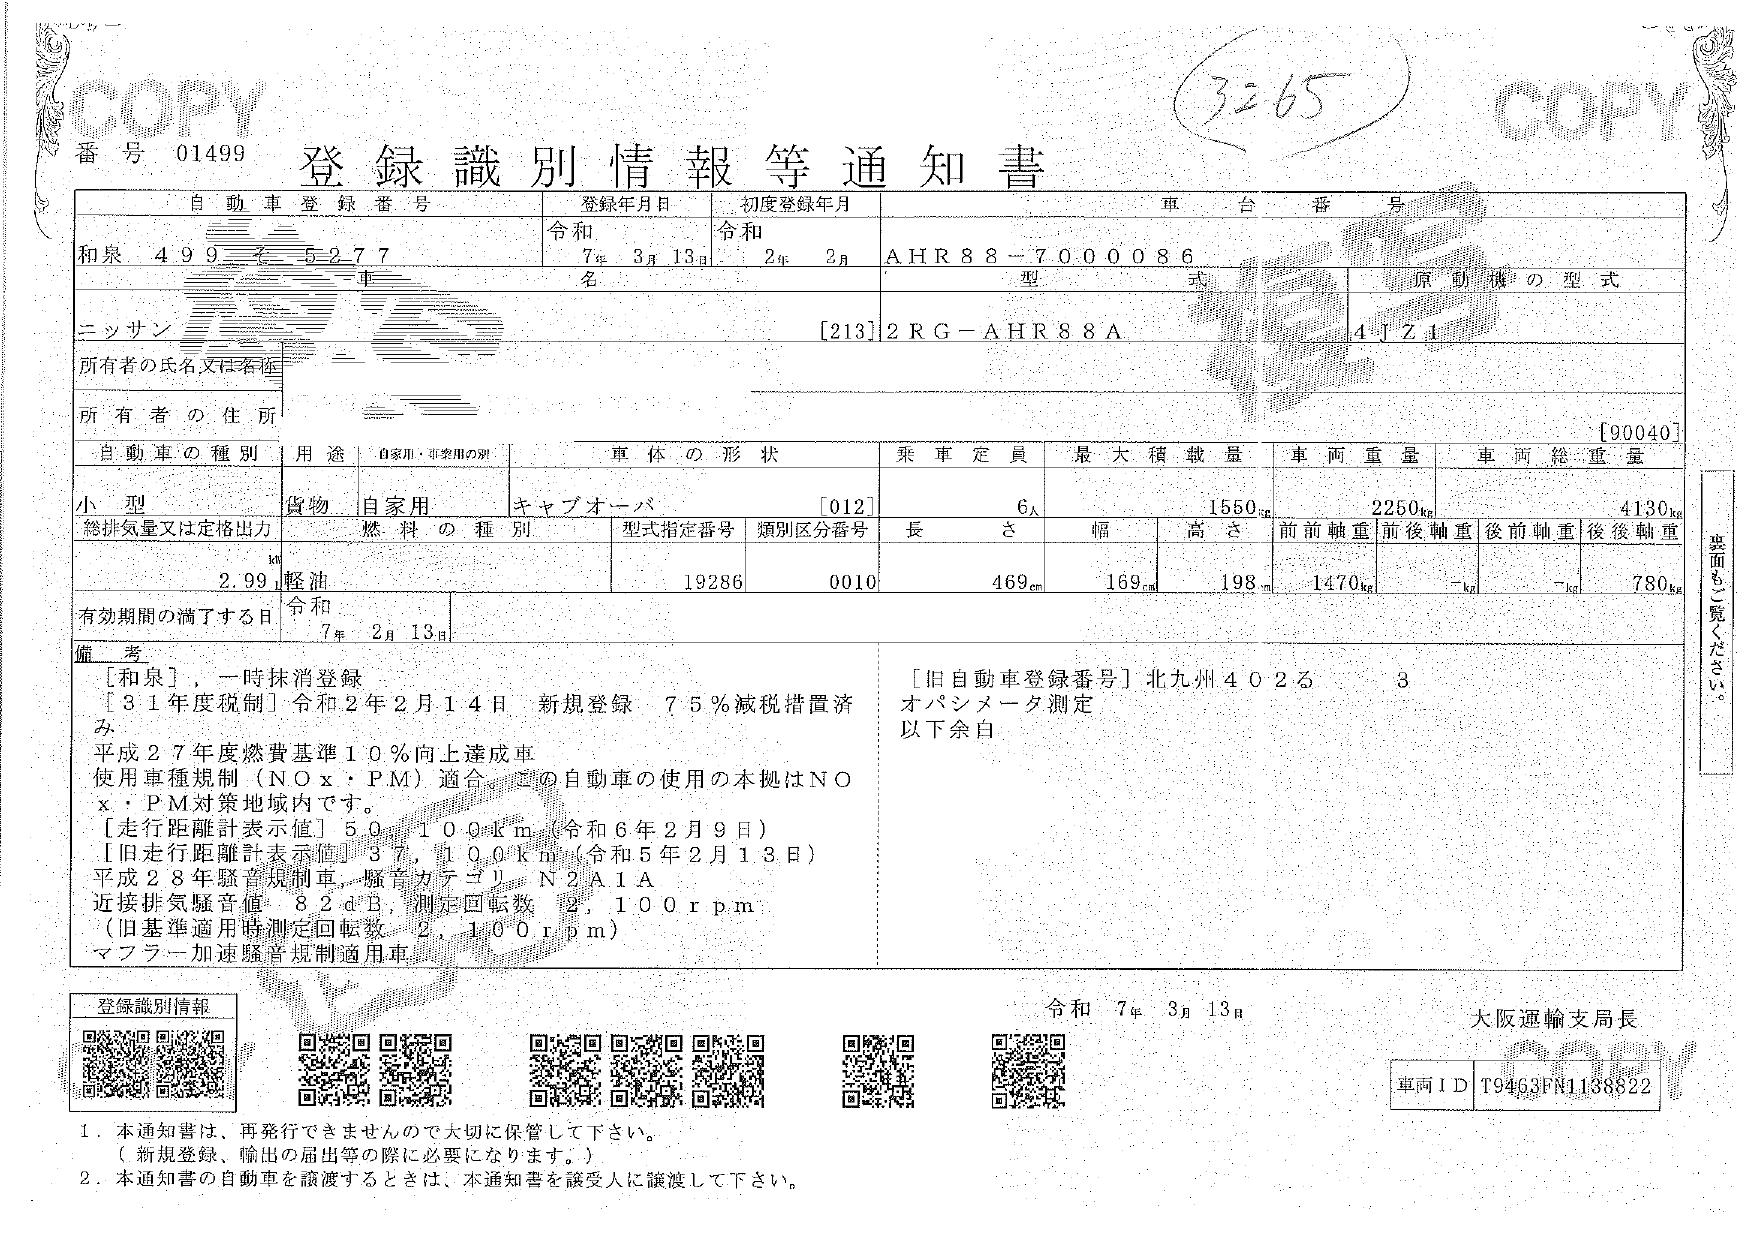 COPY
3265
COPY
番号 01499
登録識別情報等通知書
自動車登録番号 登録年月日 初度登録年月 車台番号
和泉 499 そ 5277 令和 7年 3月 13日 令和 2年 2月 AHR88-7000086
車名 型式 原動機の型式
ニッサン [213] 2RG-AHR88A 4JZ1
所有者の氏名又は名称
所有者の住所
[90040]
自動車の種別 用途 自家用・事業用の別 車体の形状 乗車定員 最大積載量 車両重量 車両総重量
小型 貨物 自家用 キャブオーバ [012] 6人 1550kg 2250kg 4130kg
総排気量又は定格出力 燃料の種別 型式指定番号 類別区分番号 長さ 幅 高さ 前前軸重 前後軸重 後前軸重 後後軸重
kW
2.99 L 軽油 19286 0010 469cm 169cm 198cm 1470kg -kg -kg 780kg
有効期間の満了する日 令和 7年 2月 13日
備考
[和泉],一時抹消登録
[31年度税制]令和2年2月14日 新規登録 75%減税措置済
み
平成27年度燃費基準10%向上達成車
使用車種規制(NOx・PM)適合。この自動車の使用の本拠はNO
x・PM対策地域内です。
[走行距離計表示値]50,100km(令和6年2月9日)
[旧走行距離計表示値]37,100km(令和5年2月13日)
平成28年騒音規制車,騒音カテゴリ N2A1A
近接排気騒音値 82dB,測定回転数 2,100rpm
(旧基準適用時測定回転数 2,100rpm)
マフラー加速騒音規制適用車
[旧自動車登録番号]北九州402る 3
オパシメータ測定
以下余白
裏面もご覧ください。
登録識別情報
令和 7年 3月 13日
大阪運輸支局長
COPY
車両ID T9463FN1138822
1. 本通知書は、再発行できませんので大切に保管して下さい。
(新規登録、輸出の届出等の際に必要になります。)
2. 本通知書の自動車を譲渡するときは、本通知書を譲受人に譲渡して下さい。